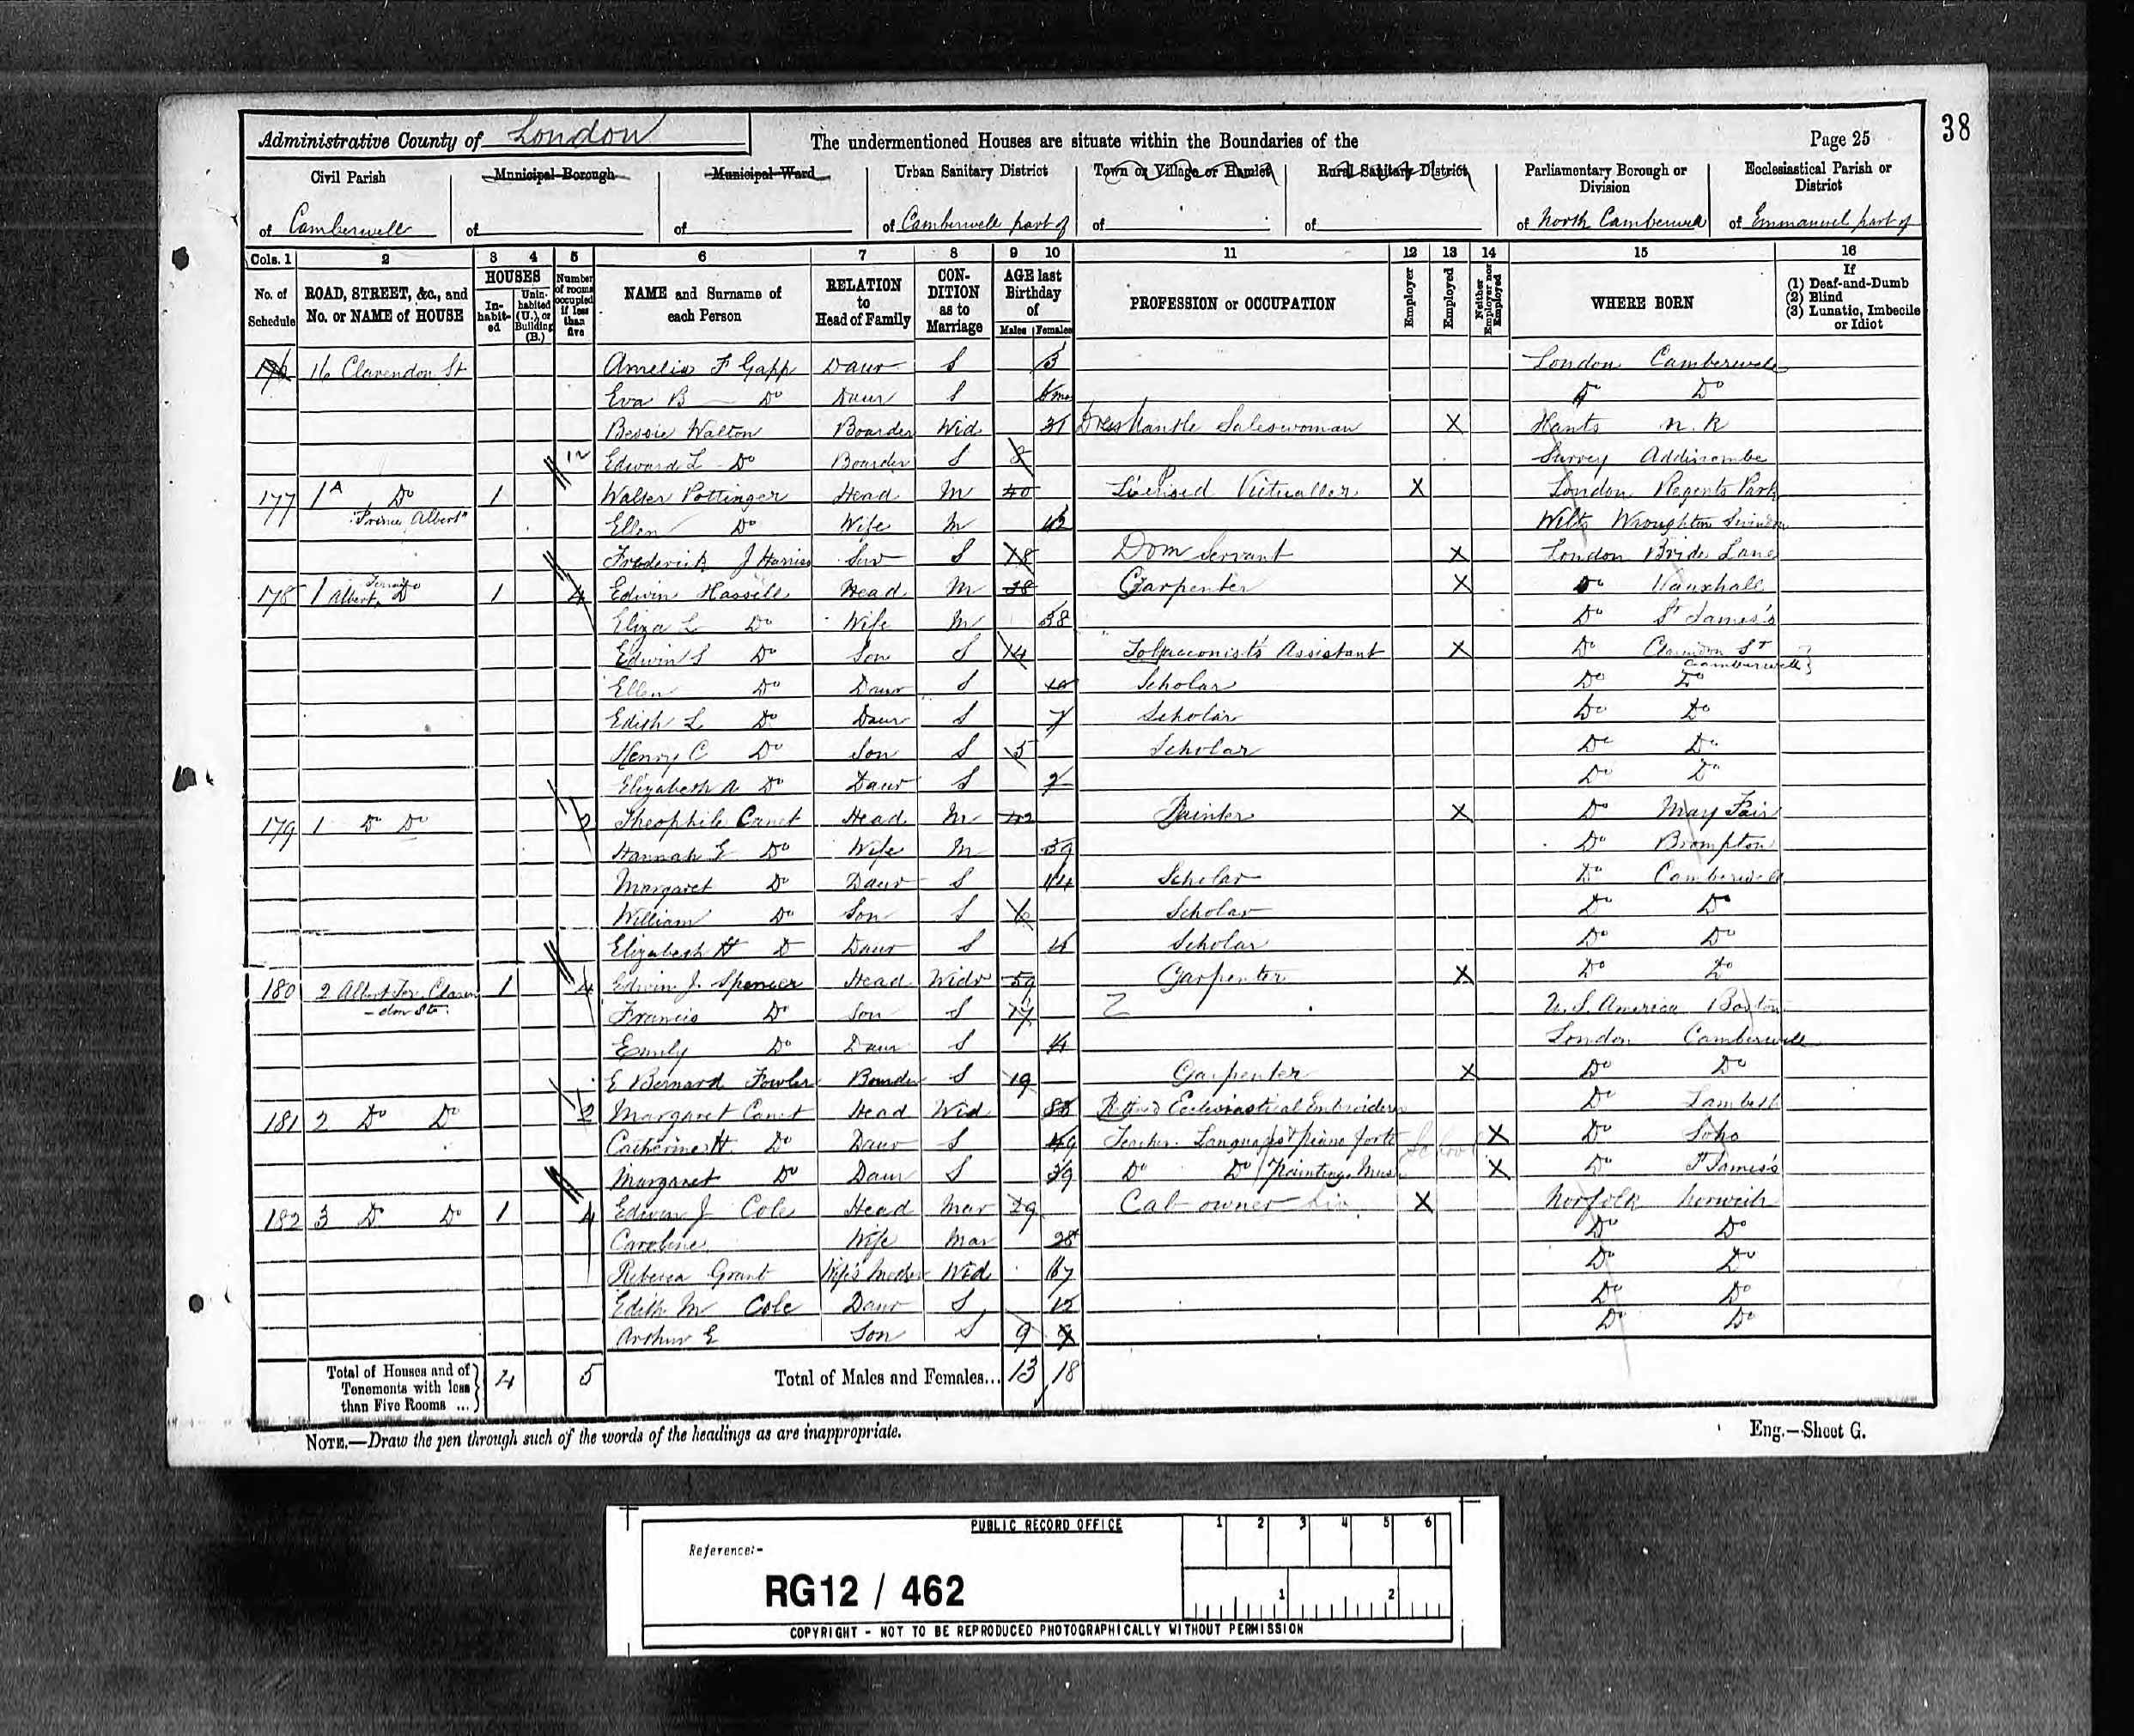 38
Administrative County of London
The undermentioned Houses are situate within the Boundaries of the
Page 25
Civil Parish
of Camberwell
Municipal Borough
of
Municipal Ward
of
Urban Sanitary District
of Camberwell part of
Town or Village or Hamlet
of
Rural Sanitary District
of
Parliamentary Borough or Division
of North Camberwell
Ecclesiastical Parish or District
of Emmanuel part of
Cols. 1 2 3 4 5 6 7 8 9 10 11 12 13 14 15 16
No. of Schedule
ROAD, STREET, &c., and No. or NAME of HOUSE
HOUSES
In-habit-ed
Unin-habited (U.), or Building (B.)
Number of rooms occupied if less than five
NAME and Surname of each Person
RELATION to Head of Family
CON-DITION as to Marriage
AGE last Birthday of
Males Females
PROFESSION or OCCUPATION
Employer
Employed
Neither Employer nor Employed
WHERE BORN
If
(1) Deaf-and-Dumb
(2) Blind
(3) Lunatic, Imbecile or Idiot
176 16 Clarendon St Amelia F Gapp Daur S 3 London Camberwell
Eva B Do Daur S Do Do
Bessie Walton Boarder Wid 31 Dress Mantle Saleswoman X Hants N.K
12 Edward L Do Boarder S 8 Surrey Addiscombe
177 1A Do 1 Walter Pottinger Head M 40 Licensed Victualler X London Regents Park
"Prince Albert" Ellen Do Wife M 43 Wilts Wroughton Swindon
Frederick J Harris Serv S 18 Dom Servant X London Brides Lane
178 1 Albert Terrace Do 1 4 Edwin Hassell Head M 38 Carpenter X Do Vauxhall
Eliza L Do Wife M 38 Do St James's
Edwin S Do Son S 14 Tobacconist's Assistant X Do Clarendon St Camberwell
Ellen Do Daur S 10 Scholar Do Do
Edith L Do Daur S 7 Scholar Do Do
Henry C Do Son S 5 Scholar Do Do
Elizabeth A Do Daur S 2 Do Do
179 1 Do Do 2 Theophile Canet Head M 42 Painter X Do May Fair
Hannah E Do Wife M 39 Do Brompton
Margaret Do Daur S 14 Scholar Do Camberwell
William Do Son S 6 Scholar Do Do
Elizabeth H D Daur S 4 Scholar Do Do
180 2 Albert Ter. Claren 1 4 Edwin J. Spencer Head Widr 59 Carpenter X Do Do
-don St. Francis Do Son S 17 U.S. America Boston
Emily Do Daur S 14 London Camberwell
E Bernard Fowler Boarder S 19 Carpenter X Do Do
181 2 Do Do 2 Margaret Canet Head Wid Retired Ecclesiastical Embroiderer Do Lambeth
Catherine H. Do Daur S 49 Teacher. Languages & piano forte School X Do Soho
Margaret Do Daur S 39 Do Do Painting Music X Do St James's
182 3 Do Do 1 4 Edwin J Cole Head Mar 29 Cab owner X Norfolk Norwich
Caroline Wife Mar 28 Do Do
Rebecca Grant Wife's Mother Wid 67 Do Do
Edith M Cole Daur S 12 Do Do
Arthur E Son S 9 9 Do Do
Total of Houses and of Tenements with less than Five Rooms ... 4 5
Total of Males and Females... 13 18
NOTE.—Draw the pen through such of the words of the headings as are inappropriate.
Eng.—Sheet G.
PUBLIC RECORD OFFICE
1 2 3 4 5 6
Reference:-
RG12 / 462
1 2
COPYRIGHT - NOT TO BE REPRODUCED PHOTOGRAPHICALLY WITHOUT PERMISSION